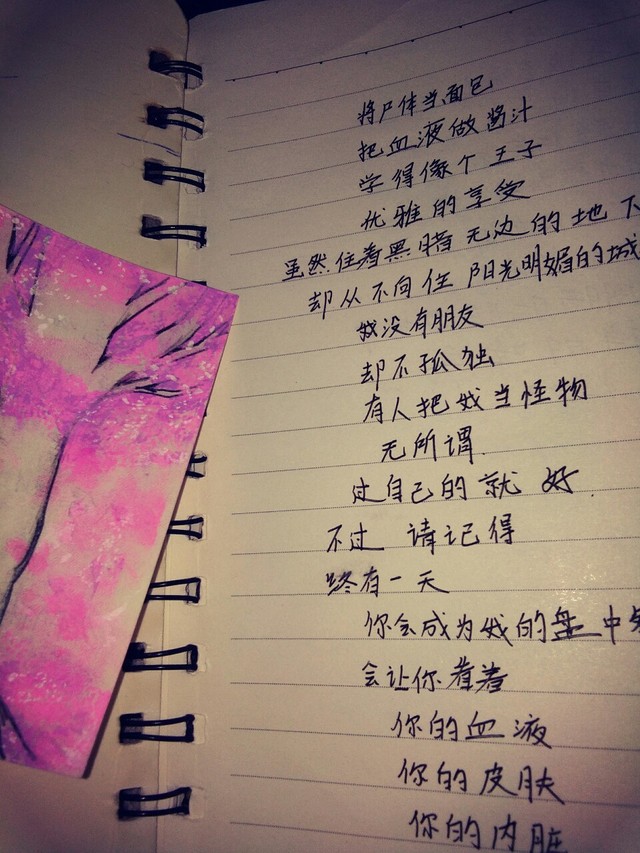 将尸体当面包
把血液做酱汁
学得像个王子
优雅的享受
虽然住着黑暗无边的地下
却从不向往阳光明媚的城
我没有朋友
却不孤独
有人把我当怪物
无所谓
过自己的就好.
不过 请记得
终有一天
你会成为我的盘中
会让你看着
你的血液
你的皮肤
你的内脏